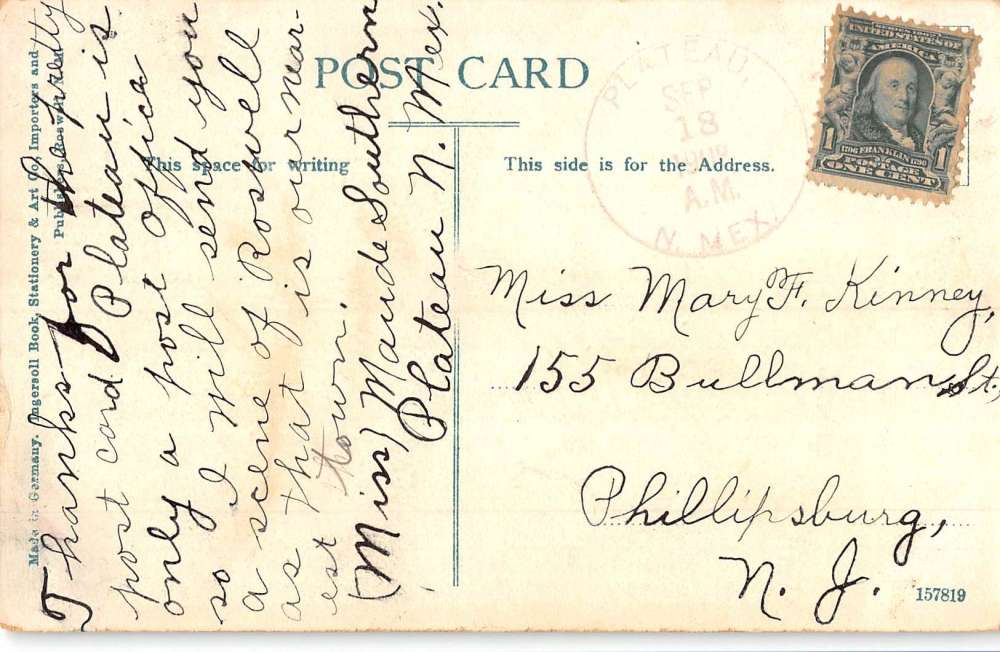 POST CARD
This space for writing
This side is for the Address.
Made in Germany. Ingersoll Book, Stationery & Art Co., Importers and
Publishers, Roswell, N.M.
Thanks for the pretty
post card Plateau is
only a post office
so I will send you
a scene of Roswell
as that is our near-
est town.
(Miss) Maude Southern
Plateau N. Mex.
PLATEAU,
SEP
18
A.M.
N. MEX.
UNITED STATES OF
AMERICA
1706 FRANKLIN 1790
1 POSTAGE 1
ONE CENT
Miss Mary F. Kinney,
155 Bullman St.,
Phillipsburg,
N. J.
157819